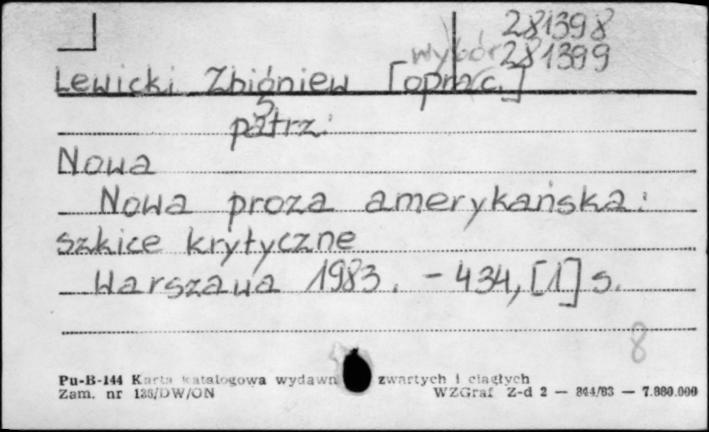 281398
wybór 281399
Lewicki Zbigniew [oprac.]
patrz:
Nowa
Nowa proza amerykańska:
szkice krytyczne
Warszawa 1983. - 434, [1] s.
8
Pu-B-144 Karta katalogowa wydawn zwartych i ciągłych
Zam. nr 135/DW/ON WZGraf Z-d 2 — 844/83 — 7.880.000